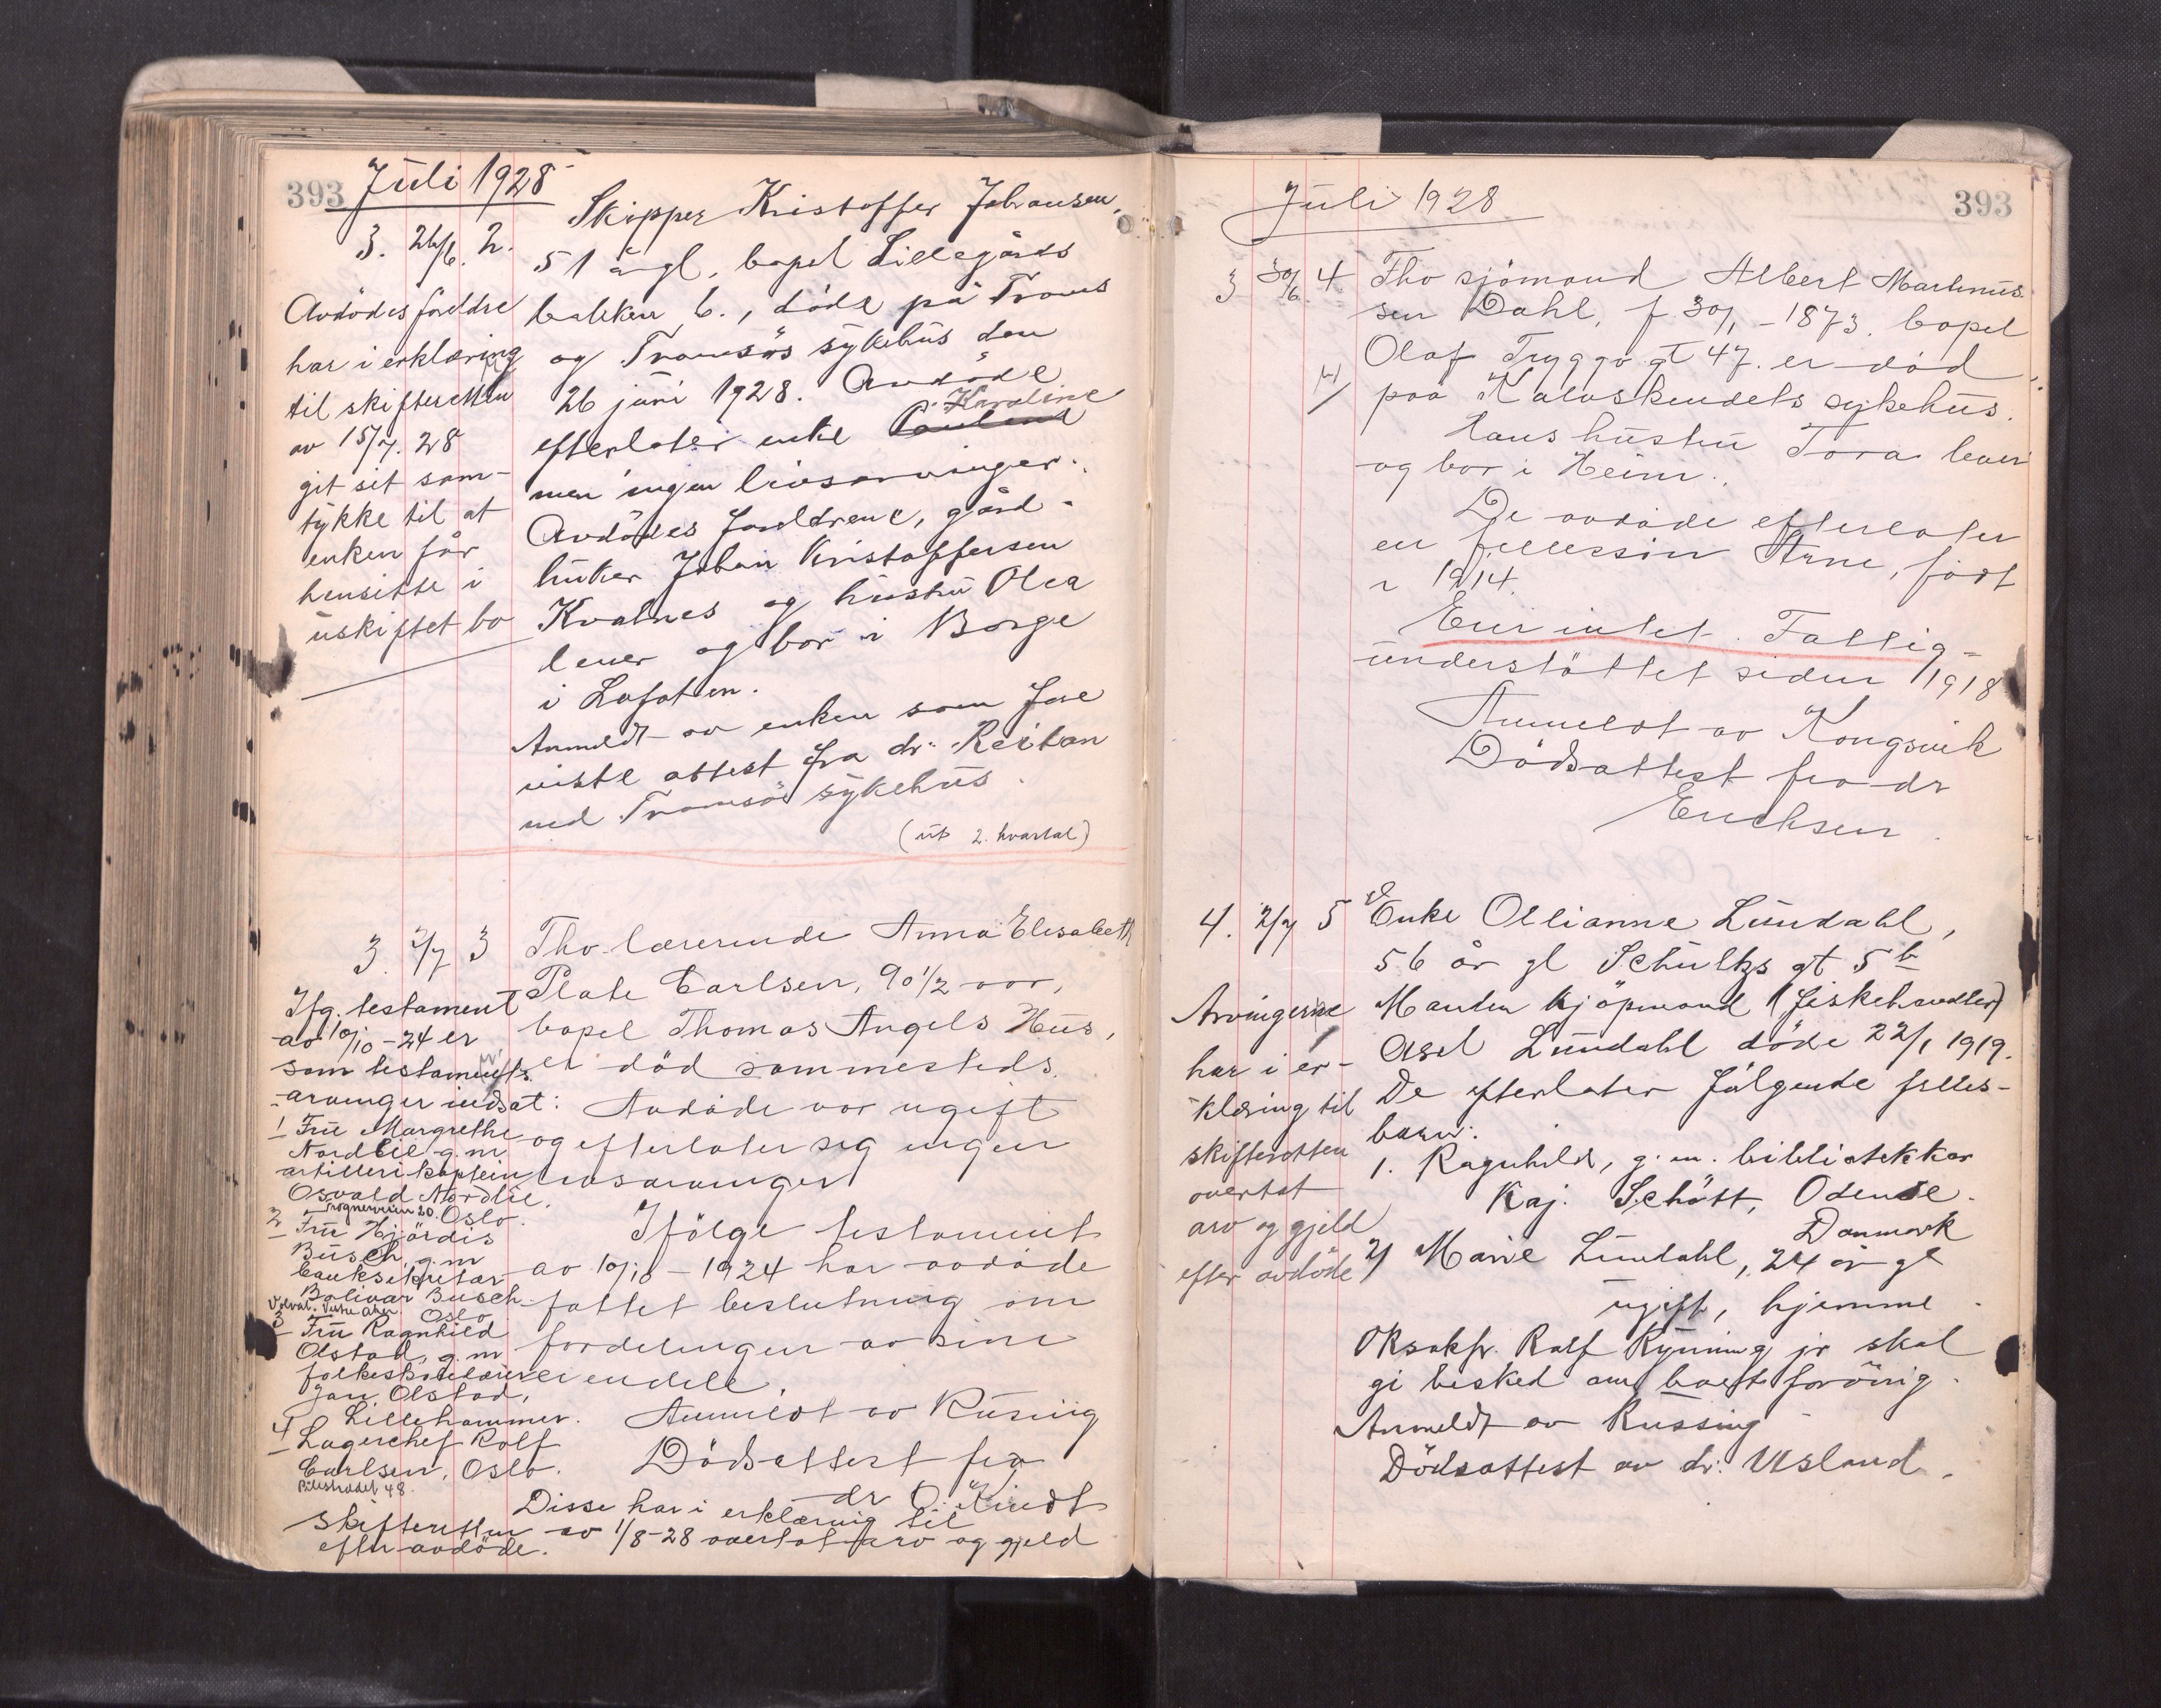 393 Juli 1928
3. 26/6. 2. Skipper Kristoffer Johansen,
51 år gl. bopel Lillegårds
bakken 6., døde på Troms
og Tromsøs sykehus den
26 juni 1928. Avdøde
Karoline
efterlater enke
men ingen livsarvinger.
Avdødes foreldrene, gård-
bruker Johan Kristoffersen
Kvalnes og hustru Olea
lever og bor i Borge
i Lofoten.
Anmeldt av enken som fore
viste attest fra dr. Reitan
ved Tromsø sykehus.
(ut 2. kvartal)
Avdødes foreldre
har i erklæring
til skifteretten
av 15/7. 28
git sit sam-
tykke til at
enken får
hensitte i
uskiftet bo
3. 2/7 3 Fhv. lærerinde Anna Elisabeth
Plate Carlsen, 90 1/2 aar,
bopel Thomas Angels Hus,
er død sammesteds.
Avdøde var ugift
og efterlater sig ingen
livsarvinger
Ifølge testament
av 10/10 - 1924 har avdøde
fattet beslutning om
fordelingen av sine
eiendele.
Anmeldt av Rusing
Dødsattest fra
dr O. Kindt
Ifg. testament
av 10/10 - 24 er
som testaments-
arvinger indsat:
1 Fru Margrethe
Nordlie g. m
artillerikaptein
Osvald Nordlie,
Oslo.
2 Fru Hjørdis
Busch, g. m
banksekretær
Bolivar Busch
Oslo
3 Fru Ragnhild
Olstad, g. m
folkeskolelærer
Jan Olstad,
Lillehammer.
4 Lagerchef Rolf
Carlsen, Oslo.
Pilestrædet 48.
Disse har i erklæring til
skifteretten av 1/8-28 overtat arv og gjeld
efter avdøde.
Juli 1928 393
3 30/6. 4. Fhv sjømand Albert Martinus-
sen Dahl, f 30/1 - 1873. bopel
Olaf Tryggv gt 47. er død
paa Kalvskindets sykehus.
Hans hustru Tora lever
og bor i Heim.
De avdøde efterlater
en fellessøn Arne, født
i 1914.
Eier intet. Fattig-
understøttet siden 1918
Anmeldt av Kongsvik
Dødsattest fra dr
Erichsen.
4. 2/7 5 Enke Ollianne Lundahl,
56 år gl Schultzs gt 5 b
Manden kjøpmand (fiskehandler)
Axel Lundahl døde 22/1 1919.
De efterlater følgende felles-
barn:
1. Ragnhild, g. m. bibliotekkar
Kaj. Schött, Odense.
Danmark
2) Marie Lundahl, 24 år gl
ugift, hjemme.
Oksakfr. Rolf Ryning jr skal
gi besked om boet forøvrig.
Anmeldt av Russing
Dødsattest av dr. Usland.
Arvingerne
har i er-
klæring til
skifteretten
overtat
arv og gjeld
efter avdøde